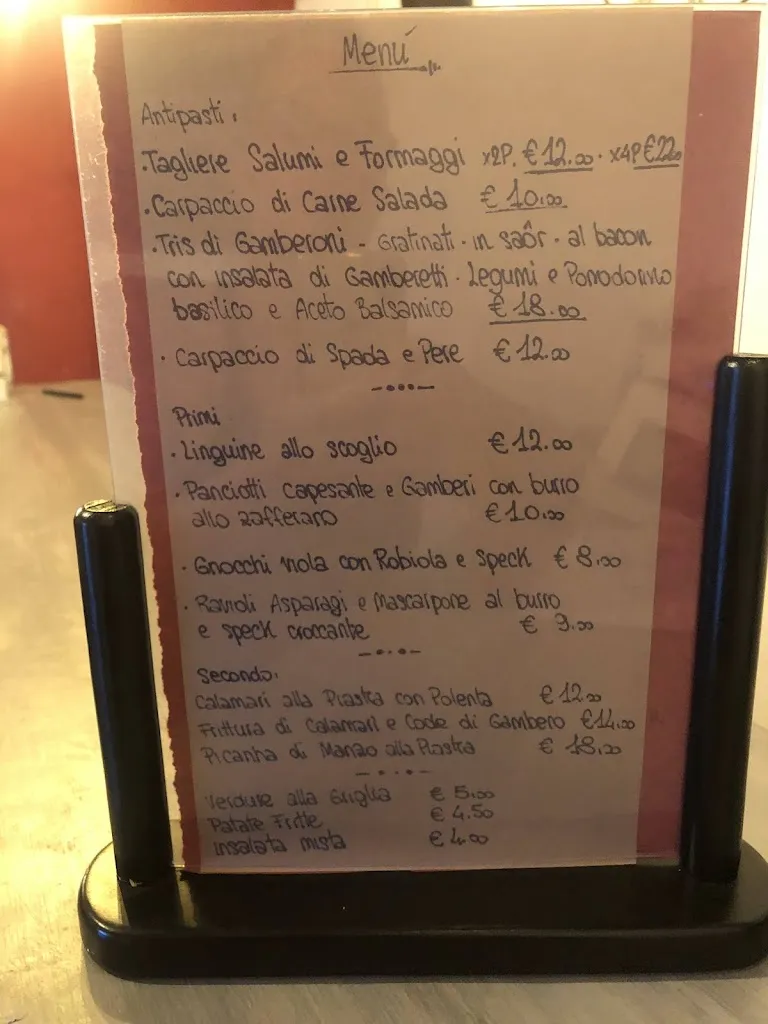 Menú
Antipasti:
·Tagliere Salumi e Formaggi x2P. €12.00 · x4P €22.00
·Carpaccio di Carne Salada €10.00
·Tris di Gamberoni - Gratinati · in saôr · al bacon
con insalata di Gamberetti · Legumi e Pomodorino
basilico e Aceto Balsamico €18.00
· Carpaccio di Spada e Pere €12.00
Primi
·Linguine allo scoglio €12.00
·Panciotti capesante e Gamberi con burro
allo zafferano €10.00
· Gnocchi viola con Robiola e Speck €8.00
· Ravioli Asparagi e Mascarpone al burro
e speck croccante € 9.00
Secondo:
Calamari alla Piastra con Polenta €12.00
Frittura di Calamari e Code di Gambero €14.00
Picanha di Manzo alla Piastra € 18.00
Verdure alla Griglia € 5.00
Patate Fritte € 4.50
insalata mista € 4.00